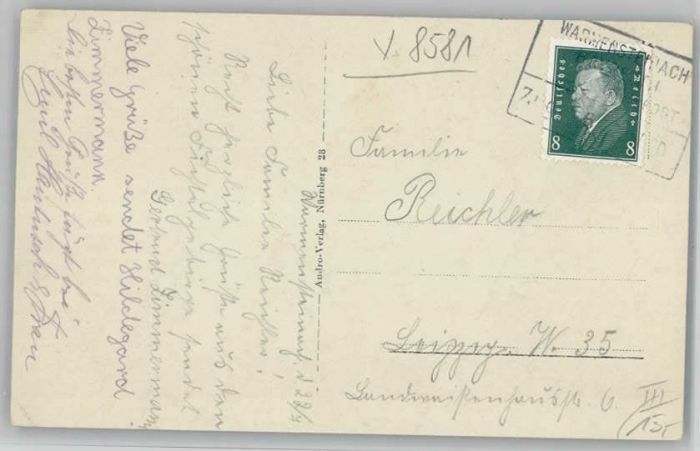 Warmensteinach, d. 29/7
Liebe Familie Reichler!
Recht herzliche Grüße aus dem
schönen Fichtelgebirge sendet
Gertrud Zimmermann
Viele Grüße sendet Hildegard
Zimmermann.
Die besten Grüße fügt bei
Emil & Frau
Andro-Verlag, Nürnberg 28
V 8581
WARMENSTEINACH
Deutsches Reich
8 8
Familie
Reichler
Leipzig W. 35
Landwaisenhausstr. 6.
III